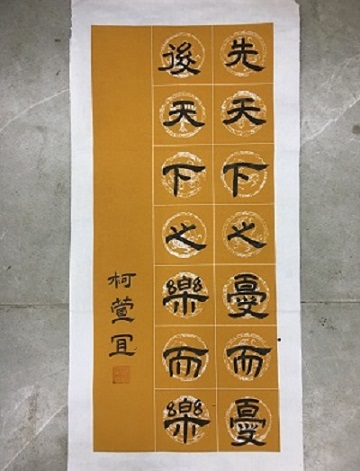 先天下之憂而憂
後天下之樂而樂
柯萱宜